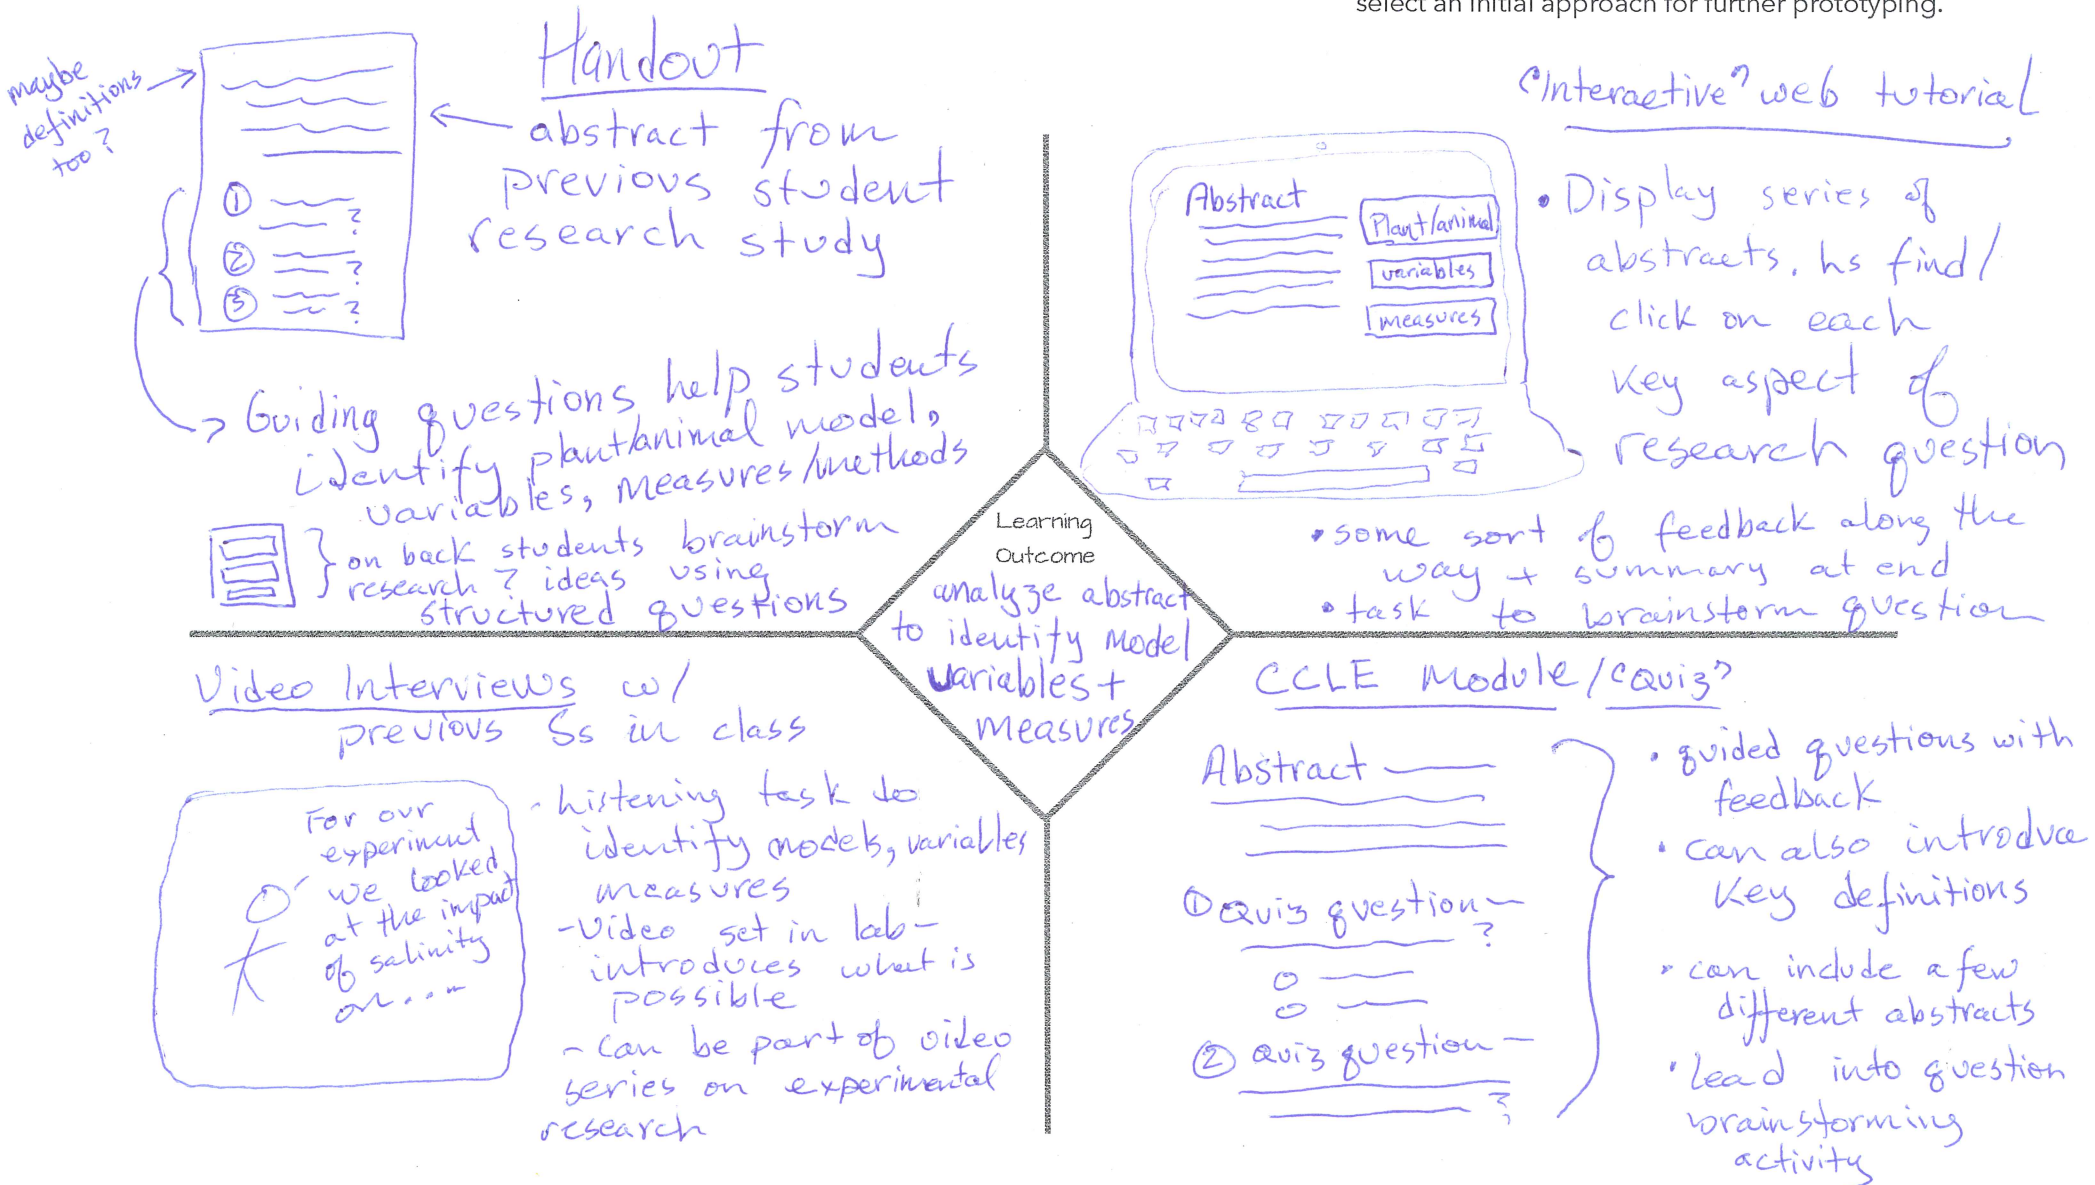 select an initial approach for further prototyping.
Handout
maybe
definitions
too?
abstract from
previous student
research study
①
?
②
?
③
?
Guiding questions help students
identify plant/animal model,
variables, measures/methods
on back students brainstorm
research ? ideas using
structured questions
"Interactive" web tutorial
Abstract
Plant/animal
variables
measures
• Display series of
abstracts. hs find/
click on each
key aspect of
research question
• some sort of feedback along the
way + summary at end
• task to brainstorm question
Learning
Outcome
analyze abstract
to identify model
variables +
measures
Video Interviews w/
previous Ss in class
For our
experiment
we looked
at the impact
of salinity
on...
- Listening task to
identify models, variables
measures
- Video set in lab -
introduces what is
possible
- can be part of video
series on experimental
research
CCLE Module/"Quiz"
Abstract
① Quiz question
?
② Quiz question
?
• guided questions with
feedback
• can also introduce
key definitions
• can include a few
different abstracts
• Lead into question
brainstorming
activity